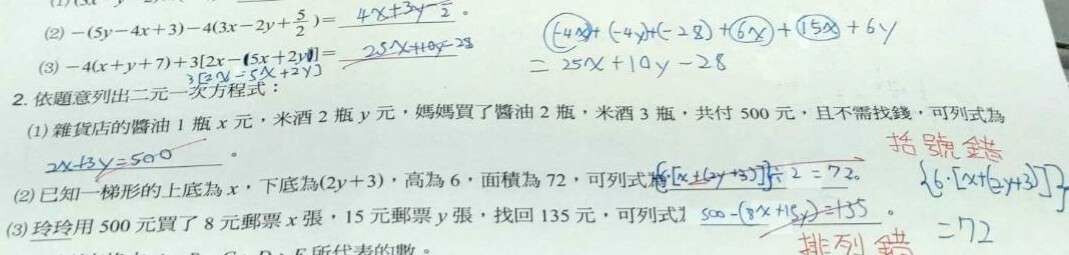 (2) −(5y−4x+3)−4(3x−2y+5/2)= 4x+3y−
(3) −4(x+y+7)+3[2x−(5x+2y)]= 25x+10y−28
3[2x−5x+2y]
(-4x)+(-4y)+(-28)+6x+15x+6y
= 25x+10y−28
2. 依題意列出二元一次方程式：
(1) 雜貨店的醬油 1 瓶 x 元，米酒 2 瓶 y 元，媽媽買了醬油 2 瓶，米酒 3 瓶，共付 500 元，且不需找錢，可列式為
2x+3y=500。
括號錯
(2) 已知一梯形的上底為 x，下底為(2y+3)，高為 6，面積為 72，可列式為{6·[x+(2y+3)]}÷2=72。
{6·[x+(2y+3)]}
=72
(3) 玲玲用 500 元買了 8 元郵票 x 張，15 元郵票 y 張，找回 135 元，可列式 500−(8x+15y)=135。
排列錯
所代表的數。